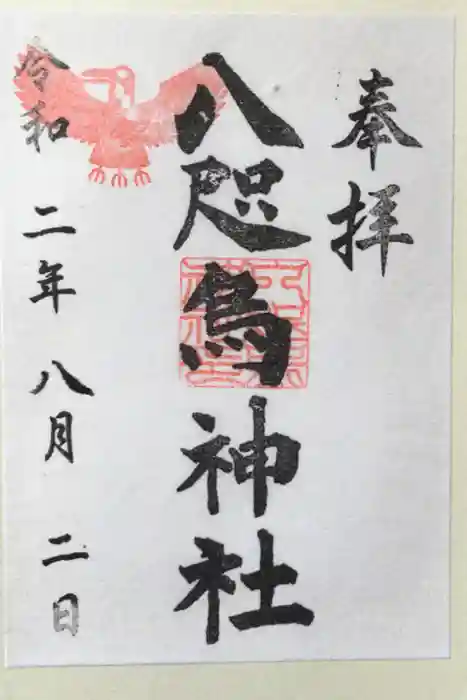 奉拝
八咫烏神社
令和二年八月二日